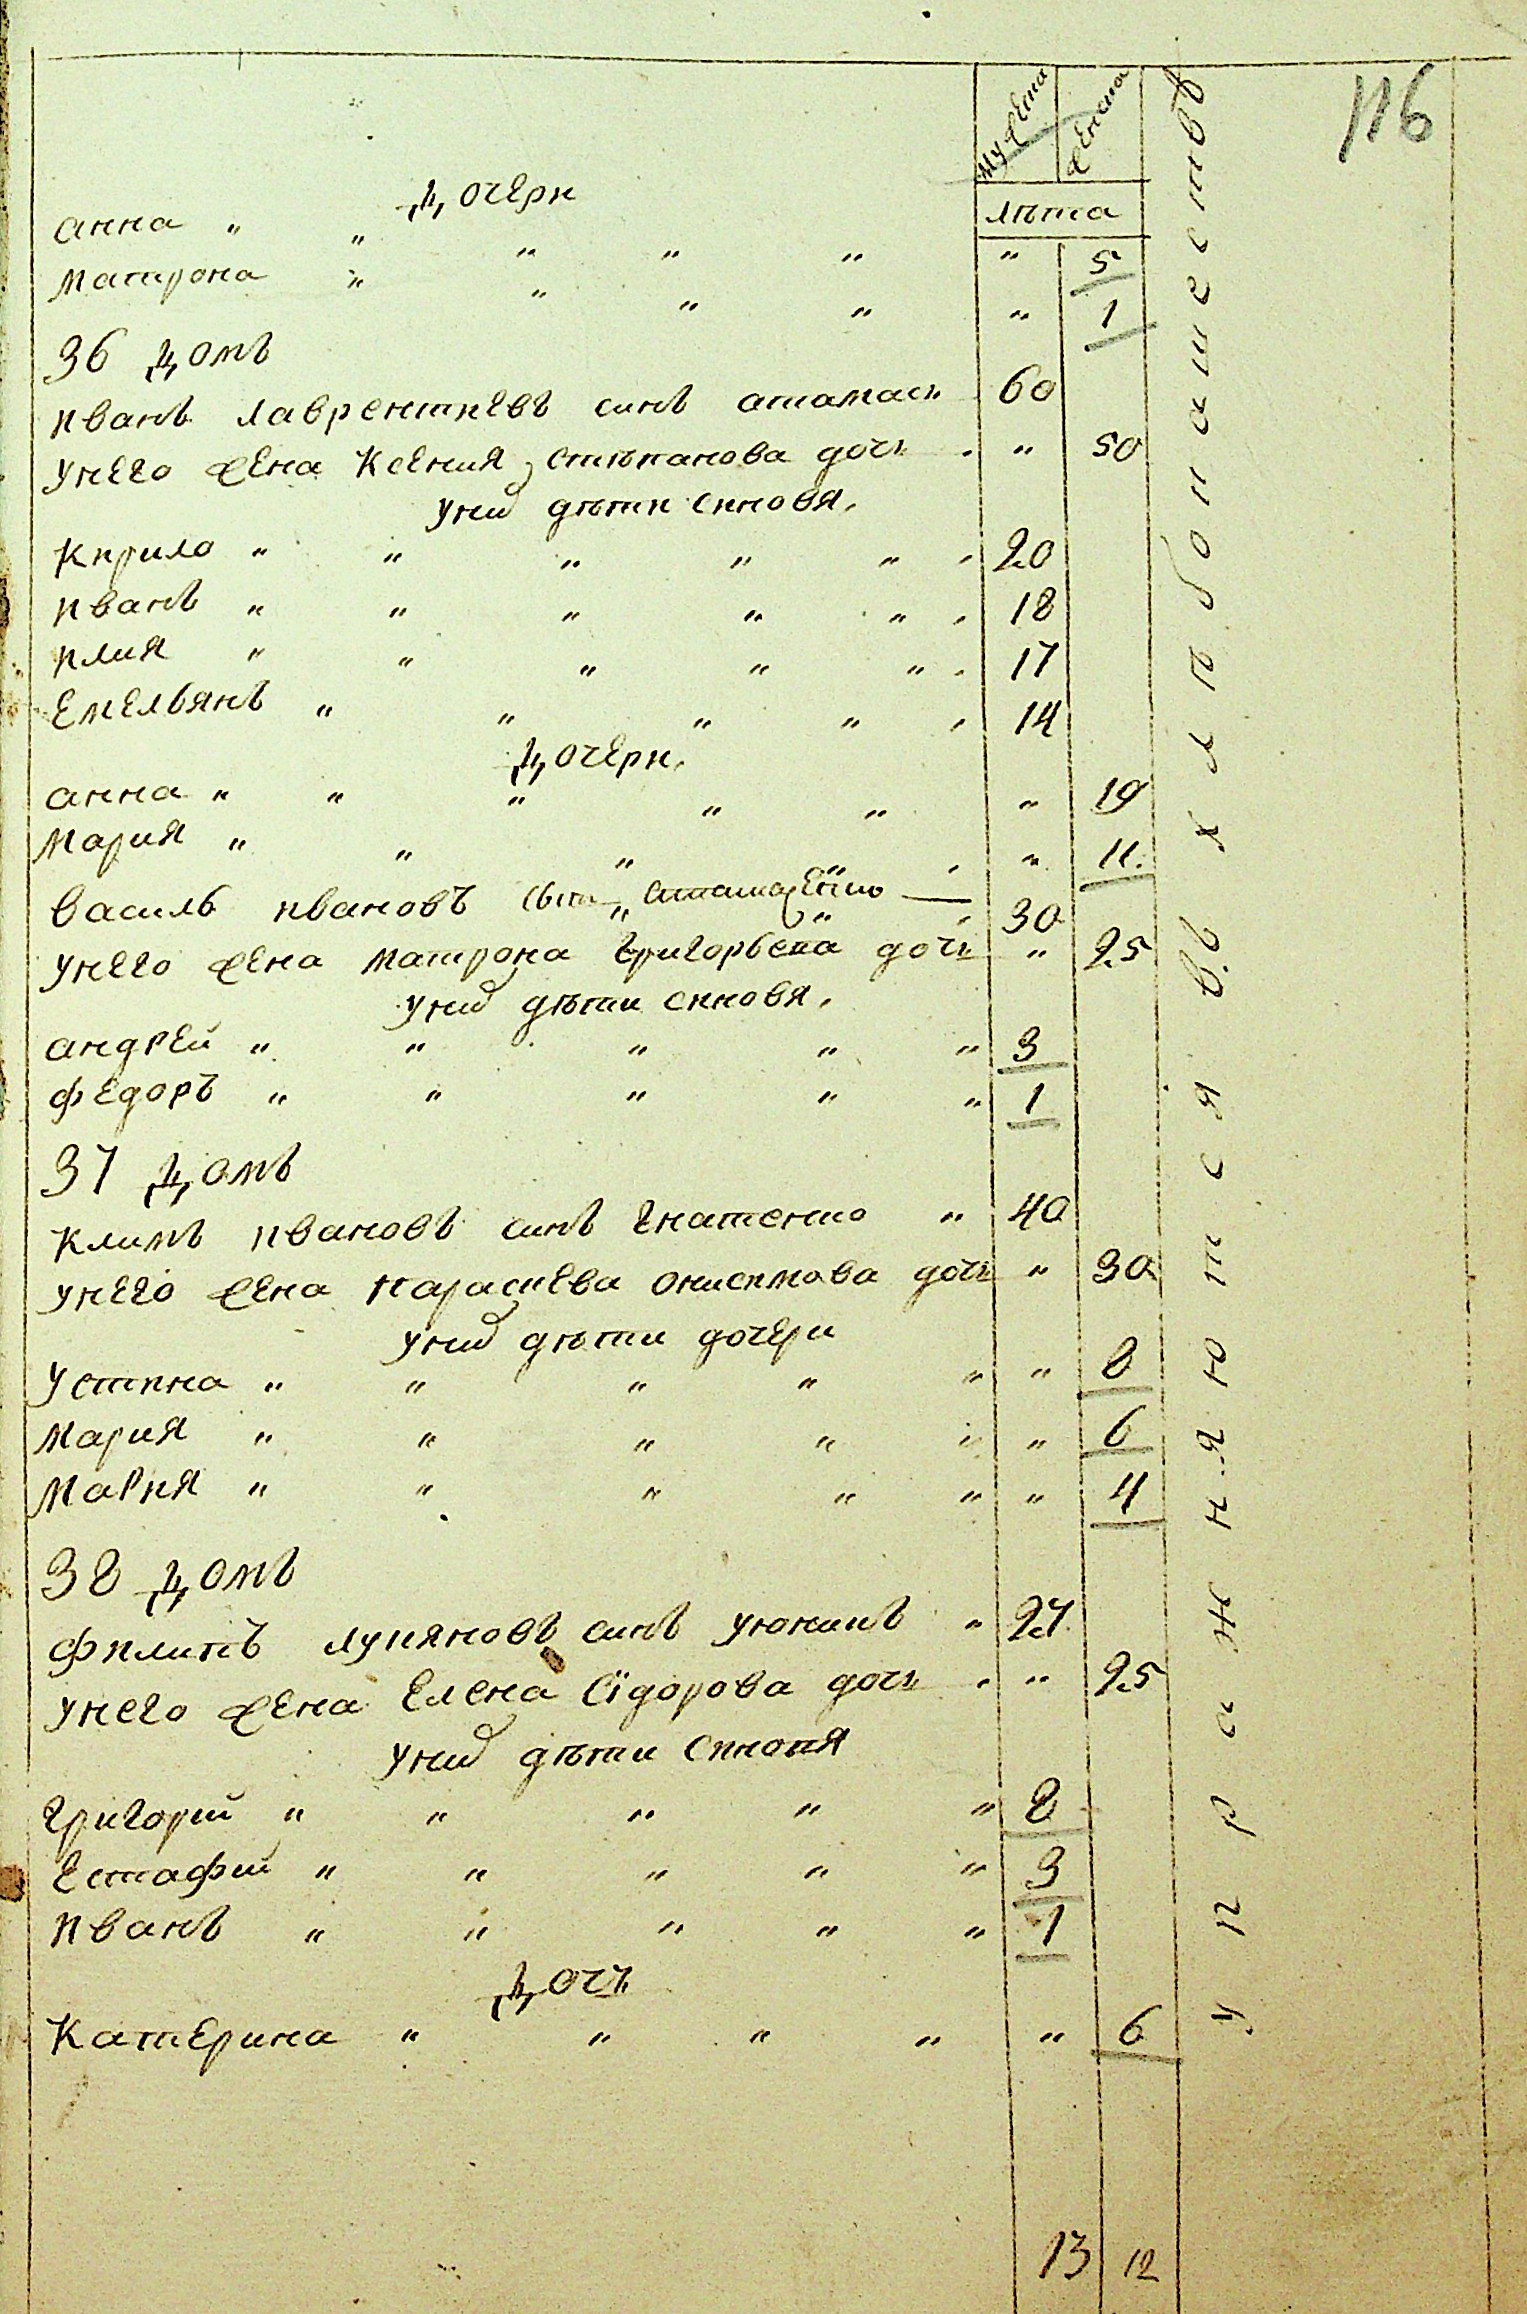 116
мужеска женска
лѣта
Дочери
анна " " " " " " 5
матрона " " " " " 1
36 Домъ
иванъ лаврентиевъ синъ атамась 60
унего жена ксения степанова дочь " 50
уних дѣти синовя.
кирило " " " " " 20
иванъ " " " " " 18
илия " " " " " 17
Емельянъ " " " " 14
Дочери.
анна " " " " " " 19
мария " " " " " 11.
василь ивановъ сынъ 30
унего жена матрона григорьева дочь " 25
уних дѣти синовя.
андрей " " " " " 3
федоръ " " " " " 1
37 Домъ
климъ ивановъ синъ гнатенко " 40
унего жена парасиева онисимова дочь " 30
уних дѣти дочери
устина " " " " " " 8
мария " " " " " " 6
мария " " " " " " 4
38 Домъ
филипъ лукяновъ синъ " 27
унего жена Елена Сідорова дочь " 25
уних дѣти синовя
григорий " " " " " 8
Естафий " " " " " 3
иванъ " " " " " 1
Дочь
катерина " " " " " 6
13 12
упражняются въ хлѣбопашествѣ